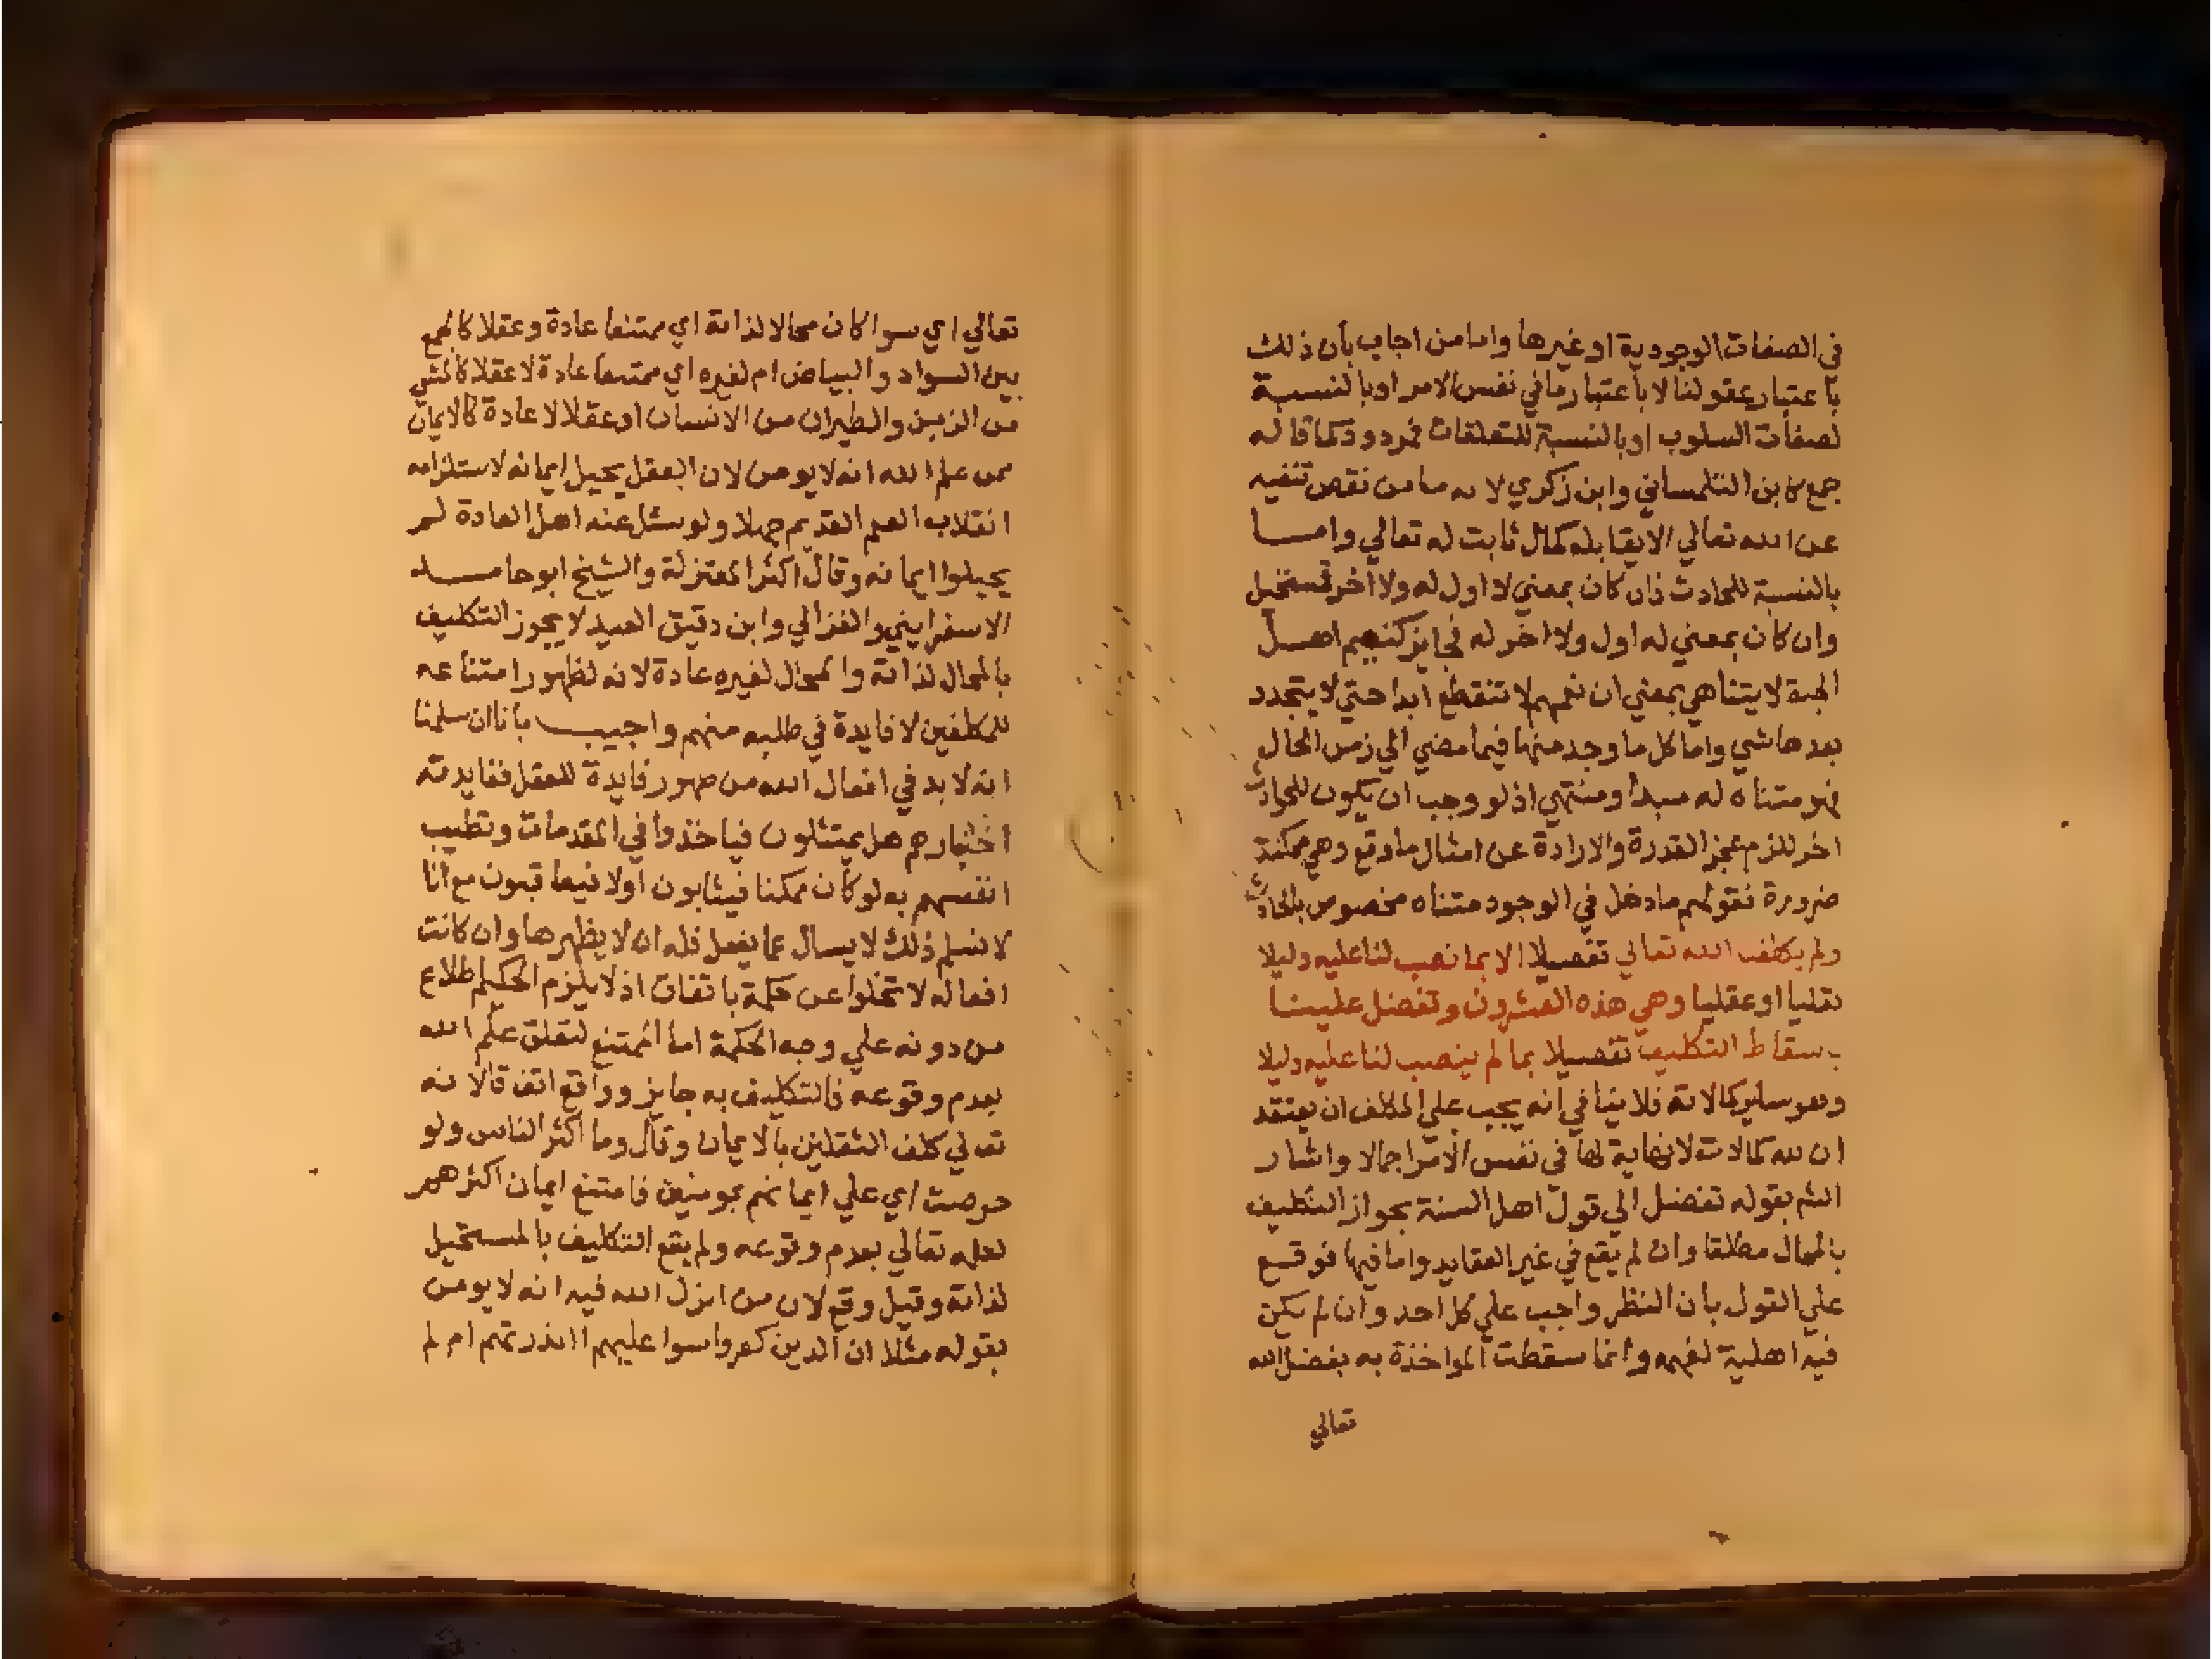 في الصفات الوجودية او غيرها واما من اجاب بأن ذلك
باعتبار عقولنا لا باعتبار ما في نفس الامر او بالنسبة
لصفات السلوب او بالنسبة للتعلقات فمردود كما قاله
جمع كابن التلمساني وابن زكري لانه ما من نقص تنفيه
عن الله تعالي الا يقابله كمال ثابت له تعالي واما
بالنسبة للحادث فان كان بمعني لا اول له ولا اخر فمستحيل
وان كان بمعني له اول ولا اخر له فجايز كنعيم اهل
الجنة لا يتناهي بمعني ان نعمهم لا تنقطع ابدا حتي لا يتجدد
بعدها شي واما كل ما وجد منها فيما مضي الي زمن الحال
فهو متناه له مبدأ ومنتهي اذ لو وجب ان يكون للحادث
اخر للزم عجز القدرة والارادة عن امثال ما وقع وهي ممكنة
ضرورة فقولهم ما دخل في الوجود متناه مخصوص بالحادث
ولم يكلف الله تعالي تفصيلا الا بما نصب لنا عليه دليلا
نقليا او عقليا وهي هذه العشرون وتفضل علينا
بسقاط التكليف تفصيلا بما لم ينصب لنا عليه دليلا
وهو ساير كمالاته فلا ينافي انه يجب علي المكلف ان يعتقد
ان لله كمالات لا نهاية لها في نفس الامر اجمالا واشار
الشم بقوله تفضل الي قول اهل السنة بجواز التكليف
بالمحال مطلقا وان لم يقع في غير العقايد واما فيها فوقع
علي القول بان النظر واجب علي كل احد وان لم يكن
فيه اهلية لفهمه وانما سقطت المواخذة به بفضل الله
تعالي
تعالي اي سوا كان محالا لذاته اي ممتنعا عادة وعقلا كالجمع
بين السواد والبياض ام لغيره اي ممتنعا عادة لا عقلا كالمشي
من الزمن والطيران من الانسان او عقلا لا عادة كالايمان
ممن علم الله انه لا يومن لان العقل يحيل ايمانه لاستلزامه
انقلاب العلم القديم جهلا ولو سئل عنه اهل العادة لم
يحيلوا ايمانه وقال اكثر المعتزلة والشيخ ابو حامد
الاسفرايني والغزالي وابن دقيق العيد لا يجوز التكليف
بالمحال لذاته والمحال لغيره عادة لانه لظهور امتناعه
للمكلفين لا فايدة في طلبه منهم واجيب بأنا ان سلمنا
انه لا بد في افعال الله من ظهور فايدة للعقل ففايدته
اختبارهم هل يمتثلون فياخذوا في المقدمات وتطيب
انفسهم به لو كان ممكنا فيثابون اولا فيعاقبون مع انا
لا نسلم ذلك لا يسال عما يفعل فله ان لا يظهرها وان كانت
افعاله لا تخلوا عن حكمة باتفاق اذ لا يلزم الحكيم اطلاع
من دونه علي وجه الحكمة اما الممتنع لتعلق علم الله
بعدم وقوعه فالتكليف به جايز وواقع اتفاقا لانه
تعالي كلف الثقلين بالايمان وقال وما اكثر الناس ولو
حرصت اي علي ايمانهم بمومنين فامتنع ايمان اكثرهم
لعلمه تعالي بعدم وقوعه ولم يقع التكليف بالمستحيل
لذاته وقيل وقع لان من انزل الله فيه انه لا يومن
بقوله مثلا ان الذين كفروا سوا عليهم اانذرتهم ام لم